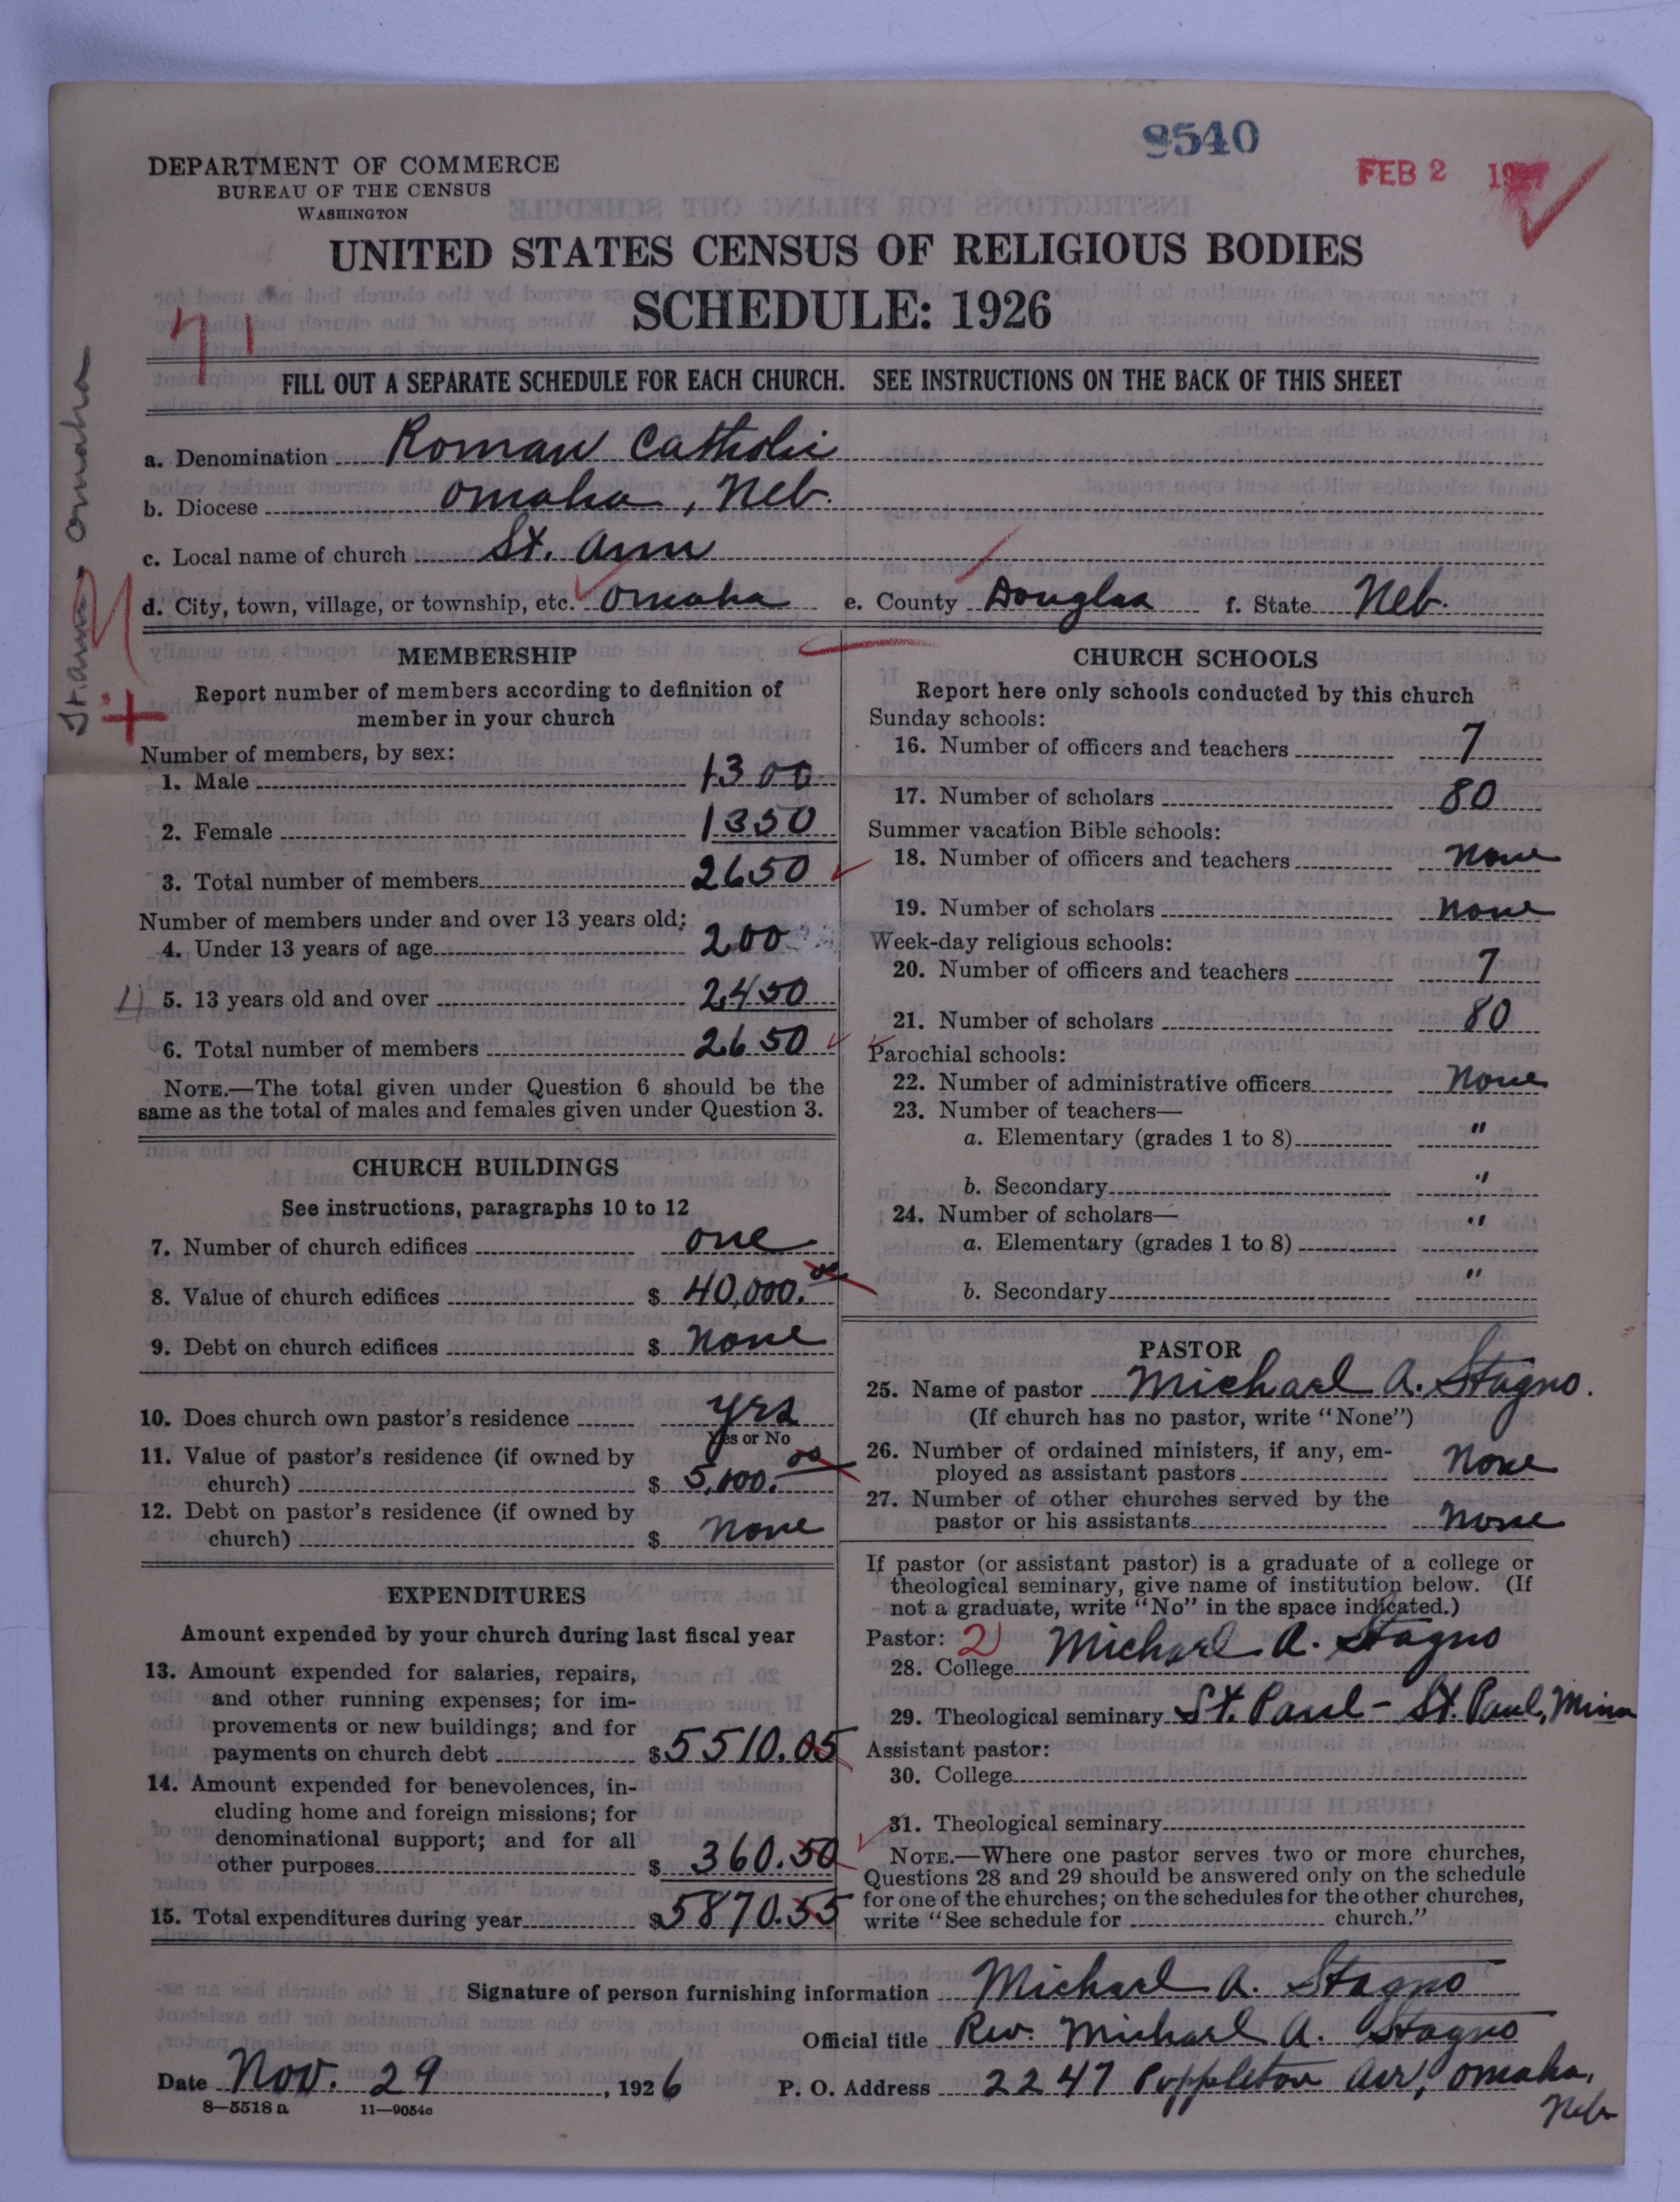 9540
FEB 2 1927
DEPARTMENT OF COMMERCE
BUREAU OF THE CENSUS
WASHINGTON
UNITED STATES CENSUS OF RELIGIOUS BODIES
SCHEDULE: 1926
71
FILL OUT A SEPARATE SCHEDULE FOR EACH CHURCH. SEE INSTRUCTIONS ON THE BACK OF THIS SHEET
St. Ann Omaha
a. Denomination Roman Catholic
b. Diocese Omaha, Neb.
c. Local name of church St. Ann
d. City, town, village, or township, etc. Omaha e. County Douglas f. State Neb.
MEMBERSHIP
Report number of members according to definition of
member in your church
Number of members, by sex:
1. Male 1300
2. Female 1350
3. Total number of members 2650
Number of members under and over 13 years old:
4. Under 13 years of age 200
1) 5. 13 years old and over 2450
6. Total number of members 2650
NOTE.—The total given under Question 6 should be the
same as the total of males and females given under Question 3.
CHURCH BUILDINGS
See instructions, paragraphs 10 to 12
7. Number of church edifices one
8. Value of church edifices $ 40,000.00
9. Debt on church edifices $ none
10. Does church own pastor's residence yes
Yes or No
11. Value of pastor's residence (if owned by
church) $ 5,000.00
12. Debt on pastor's residence (if owned by
church) $ none
EXPENDITURES
Amount expended by your church during last fiscal year
13. Amount expended for salaries, repairs,
and other running expenses; for im-
provements or new buildings; and for
payments on church debt $ 5510.05
14. Amount expended for benevolences, in-
cluding home and foreign missions; for
denominational support; and for all
other purposes $ 360.50
15. Total expenditures during year $ 5870.55
CHURCH SCHOOLS
Report here only schools conducted by this church
Sunday schools:
16. Number of officers and teachers 7
17. Number of scholars 80
Summer vacation Bible schools:
18. Number of officers and teachers none
19. Number of scholars none
Week-day religious schools:
20. Number of officers and teachers 7
21. Number of scholars 80
Parochial schools:
22. Number of administrative officers none
23. Number of teachers—
a. Elementary (grades 1 to 8) "
b. Secondary "
24. Number of scholars— "
a. Elementary (grades 1 to 8)
b. Secondary "
PASTOR
25. Name of pastor Michael A. Stagno.
(If church has no pastor, write "None")
26. Number of ordained ministers, if any, em-
ployed as assistant pastors none
27. Number of other churches served by the
pastor or his assistants none
If pastor (or assistant pastor) is a graduate of a college or
theological seminary, give name of institution below. (If
not a graduate, write "No" in the space indicated.)
Pastor: 2)
28. College Michael A. Stagno
29. Theological seminary St. Paul - St. Paul, Minn
Assistant pastor:
30. College
31. Theological seminary
NOTE.—Where one pastor serves two or more churches,
Questions 28 and 29 should be answered only on the schedule
for one of the churches; on the schedules for the other churches,
write "See schedule for church."
Signature of person furnishing information Michael A. Stagno
Official title Rev. Michael A. Stagno
Date Nov. 29, 1926 P. O. Address 2247 Poppleton Ave, Omaha,
Neb
8—5518a 11—9054c